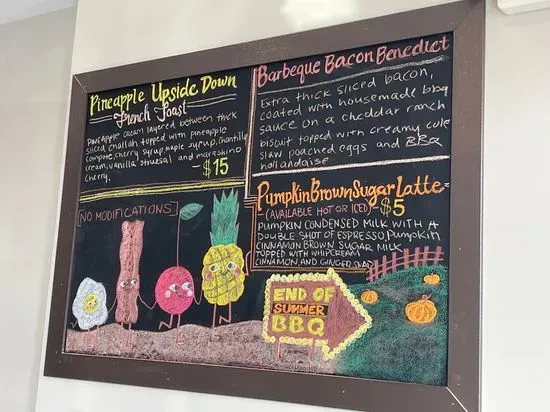 Pineapple Upside Down
French Toast
Pineapple cream layered between thick
sliced challah topped with pineapple
compote, cherry syrup, maple syrup, chantilly
cream, vanilla struesal and maraschino
cherry.
-$15
[NO MODIFICATIONS]
Barbeque Bacon Benedict
Extra thick sliced bacon,
coated with housemade bbq
sauce on a cheddar ranch
biscuit topped with creamy cole
slaw poached eggs and BBQ
hollandaise
Pumpkin Brown Sugar Latte
-(AVAILABLE HOT OR ICED)-$5
PUMPKIN CONDENSED MILK WITH A
DOUBLE SHOT OF ESPRESSO, PUMPKIN
CINNAMON BROWN SUGAR MILK
TOPPED WITH WHIPCREAM
CINNAMON, AND GINGER SNAP
END OF
SUMMER
BBQ